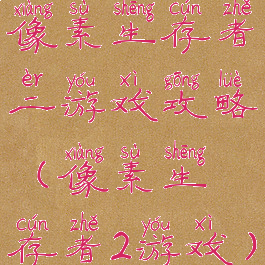 xiàng sù shēng cún zhě
像素生存者
èr yóu xì gōng lüè
二游戏攻略
xiàng sù shēng
(像素生
cún zhě yóu xì
存者2游戏)